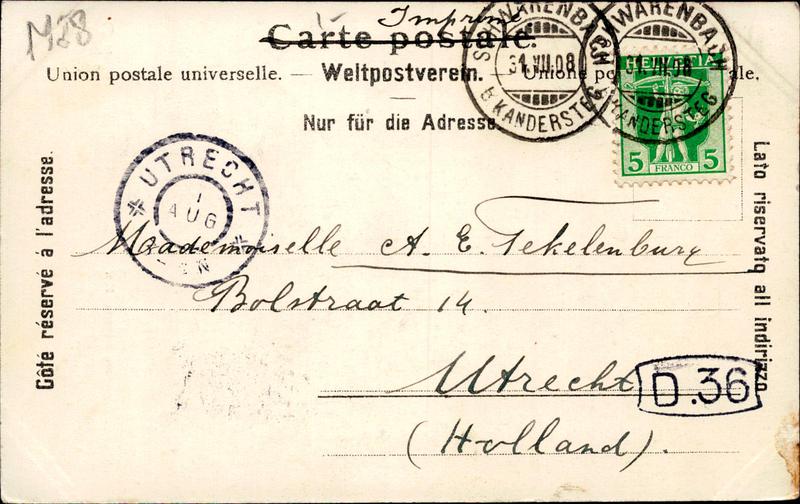 1928
Imprimé
Carte postale.
Union postale universelle. — Weltpostverein. — Unione po ale.
Nur für die Adresse
SCHWARENBACH
31.VII.08
b/KANDERSTEG
SCHWARENBACH
31.VII.08
b/KANDERSTEG
HELVETIA
5 FRANCO 5
Côté réservé á l'adresse.
Lato riservato all indirizzo
UTRECHT
1
AUG
N
Mademoiselle A. E. Tekelenburg
Bolstraat 14.
Utrecht
D.36
(Holland).